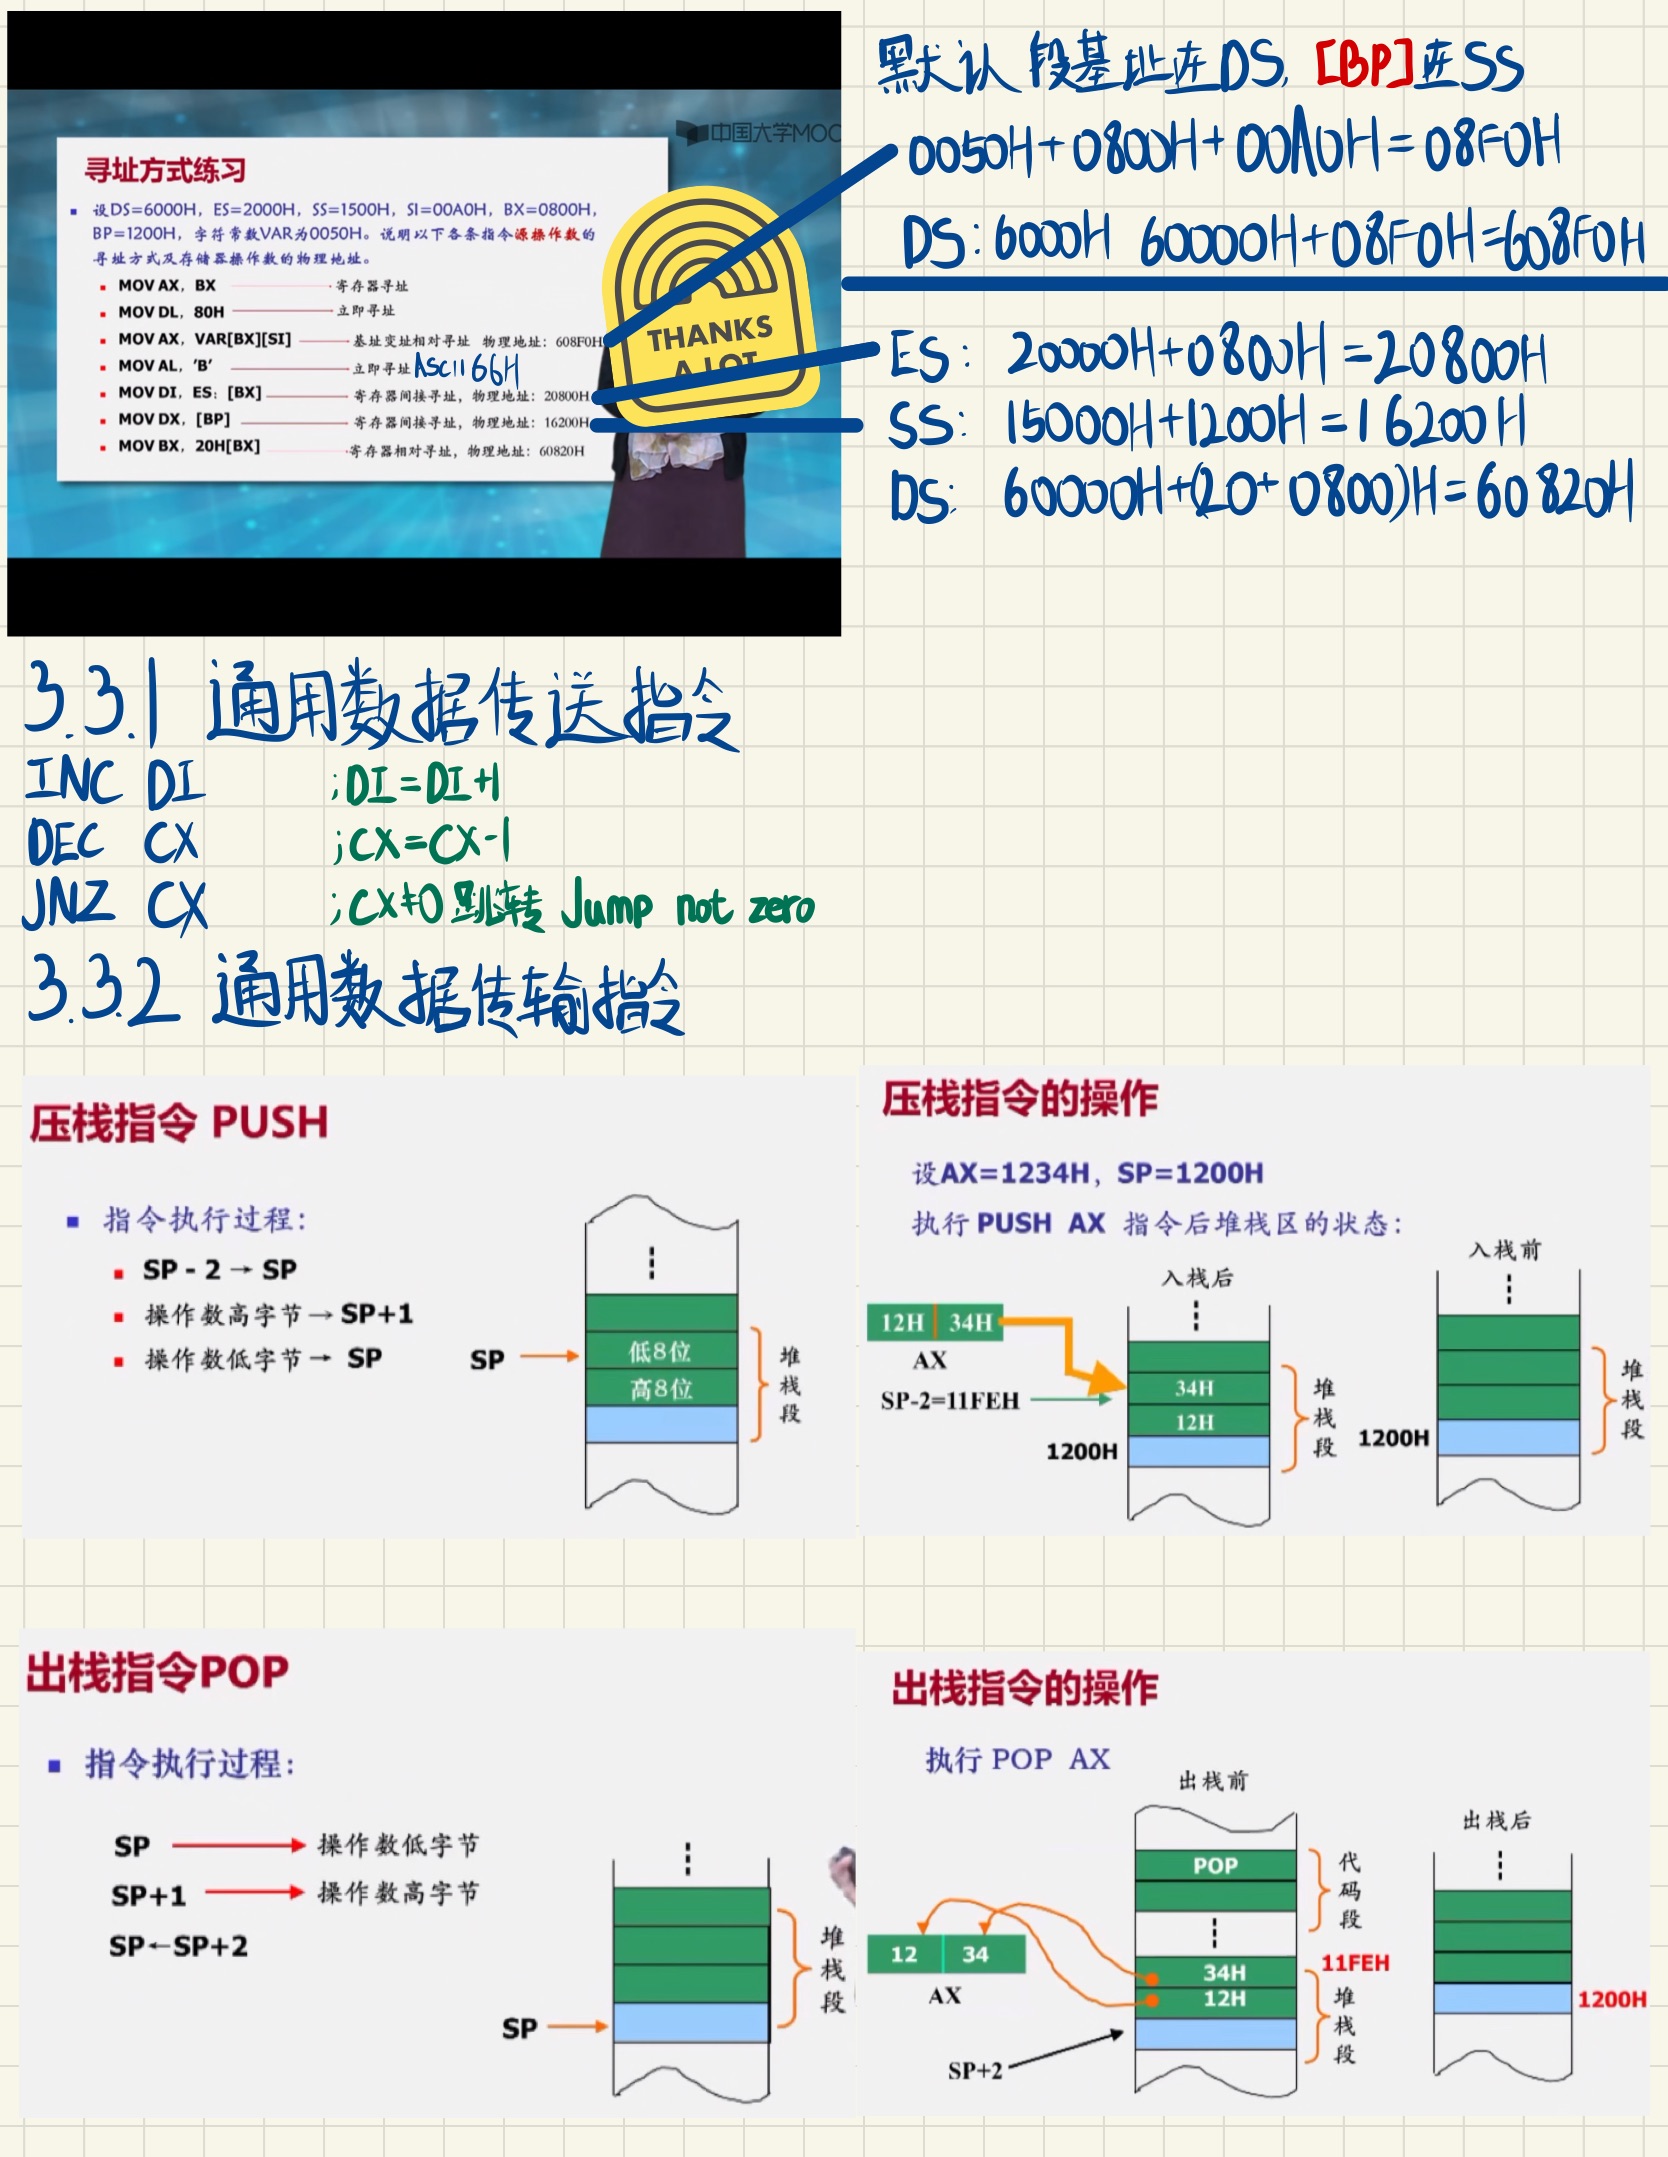 中国大学MOC
寻址方式练习
设DS=6000H, ES=2000H, SS=1500H, SI=00A0H, BX=0800H,
BP=1200H, 字符常数VAR为0050H。说明以下各条指令源操作数的
寻址方式及存储器操作数的物理地址。
MOV AX, BX 寄存器寻址
MOV DL, 80H 立即寻址
MOV AX, VAR[BX][SI] 基址变址相对寻址 物理地址: 608F0H
MOV AL, 'B' 立即寻址 ASCII 66H
MOV DI, ES: [BX] 寄存器间接寻址, 物理地址: 20800H
MOV DX, [BP] 寄存器间接寻址, 物理地址: 16200H
MOV BX, 20H[BX] 寄存器相对寻址, 物理地址: 60820H
THANKS
A LOT
默认段基址在DS, [BP]在SS
0050H+0800H+00A0H=08F0H
DS: 6000H 60000H+08F0H=608F0H
ES: 20000H+0800H=20800H
SS: 15000H+1200H=16200H
DS: 60000H+(20+0800)H=60820H
3.3.1 通用数据传送指令
INC DI ;DI=DI+1
DEC CX ;CX=CX-1
JNZ CX ;CX≠0 跳转 Jump not zero
3.3.2 通用数据传输指令
压栈指令 PUSH
指令执行过程:
SP - 2 → SP
操作数高字节→ SP+1
操作数低字节→ SP
SP
低8位
高8位
堆栈段
压栈指令的操作
设AX=1234H, SP=1200H
执行 PUSH AX 指令后堆栈区的状态:
入栈后
入栈前
12H 34H
AX
SP-2=11FEH
34H
12H
1200H
堆栈段
1200H
堆栈段
出栈指令POP
指令执行过程:
SP 操作数低字节
SP+1 操作数高字节
SP←SP+2
SP
堆栈段
出栈指令的操作
执行 POP AX
出栈前
出栈后
POP
代码段
12 34
AX
34H
12H
11FEH
堆栈段
SP+2
1200H